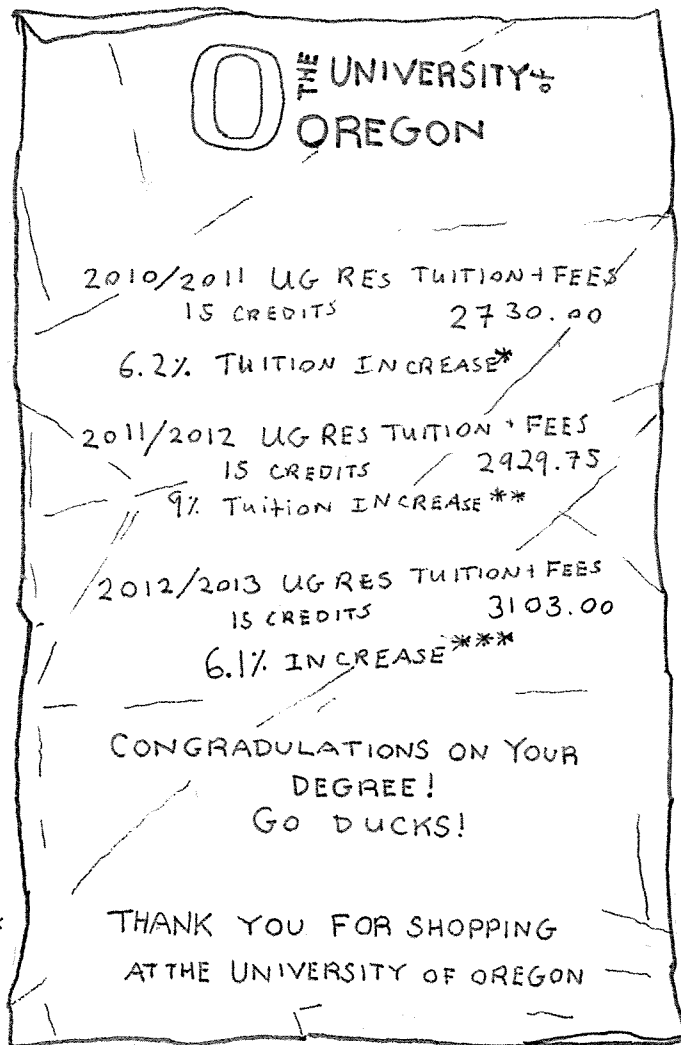 O THE UNIVERSITY OF
OREGON
2010/2011 UG RES TUITION + FEES
15 CREDITS 2730.00
6.2% TUITION INCREASE*
2011/2012 UG RES TUITION + FEES
15 CREDITS 2929.75
9% TUITION INCREASE**
2012/2013 UG RES TUITION + FEES
15 CREDITS 3103.00
6.1% INCREASE***
CONGRADULATIONS ON YOUR
DEGREE!
GO DUCKS!
THANK YOU FOR SHOPPING
AT THE UNIVERSITY OF OREGON